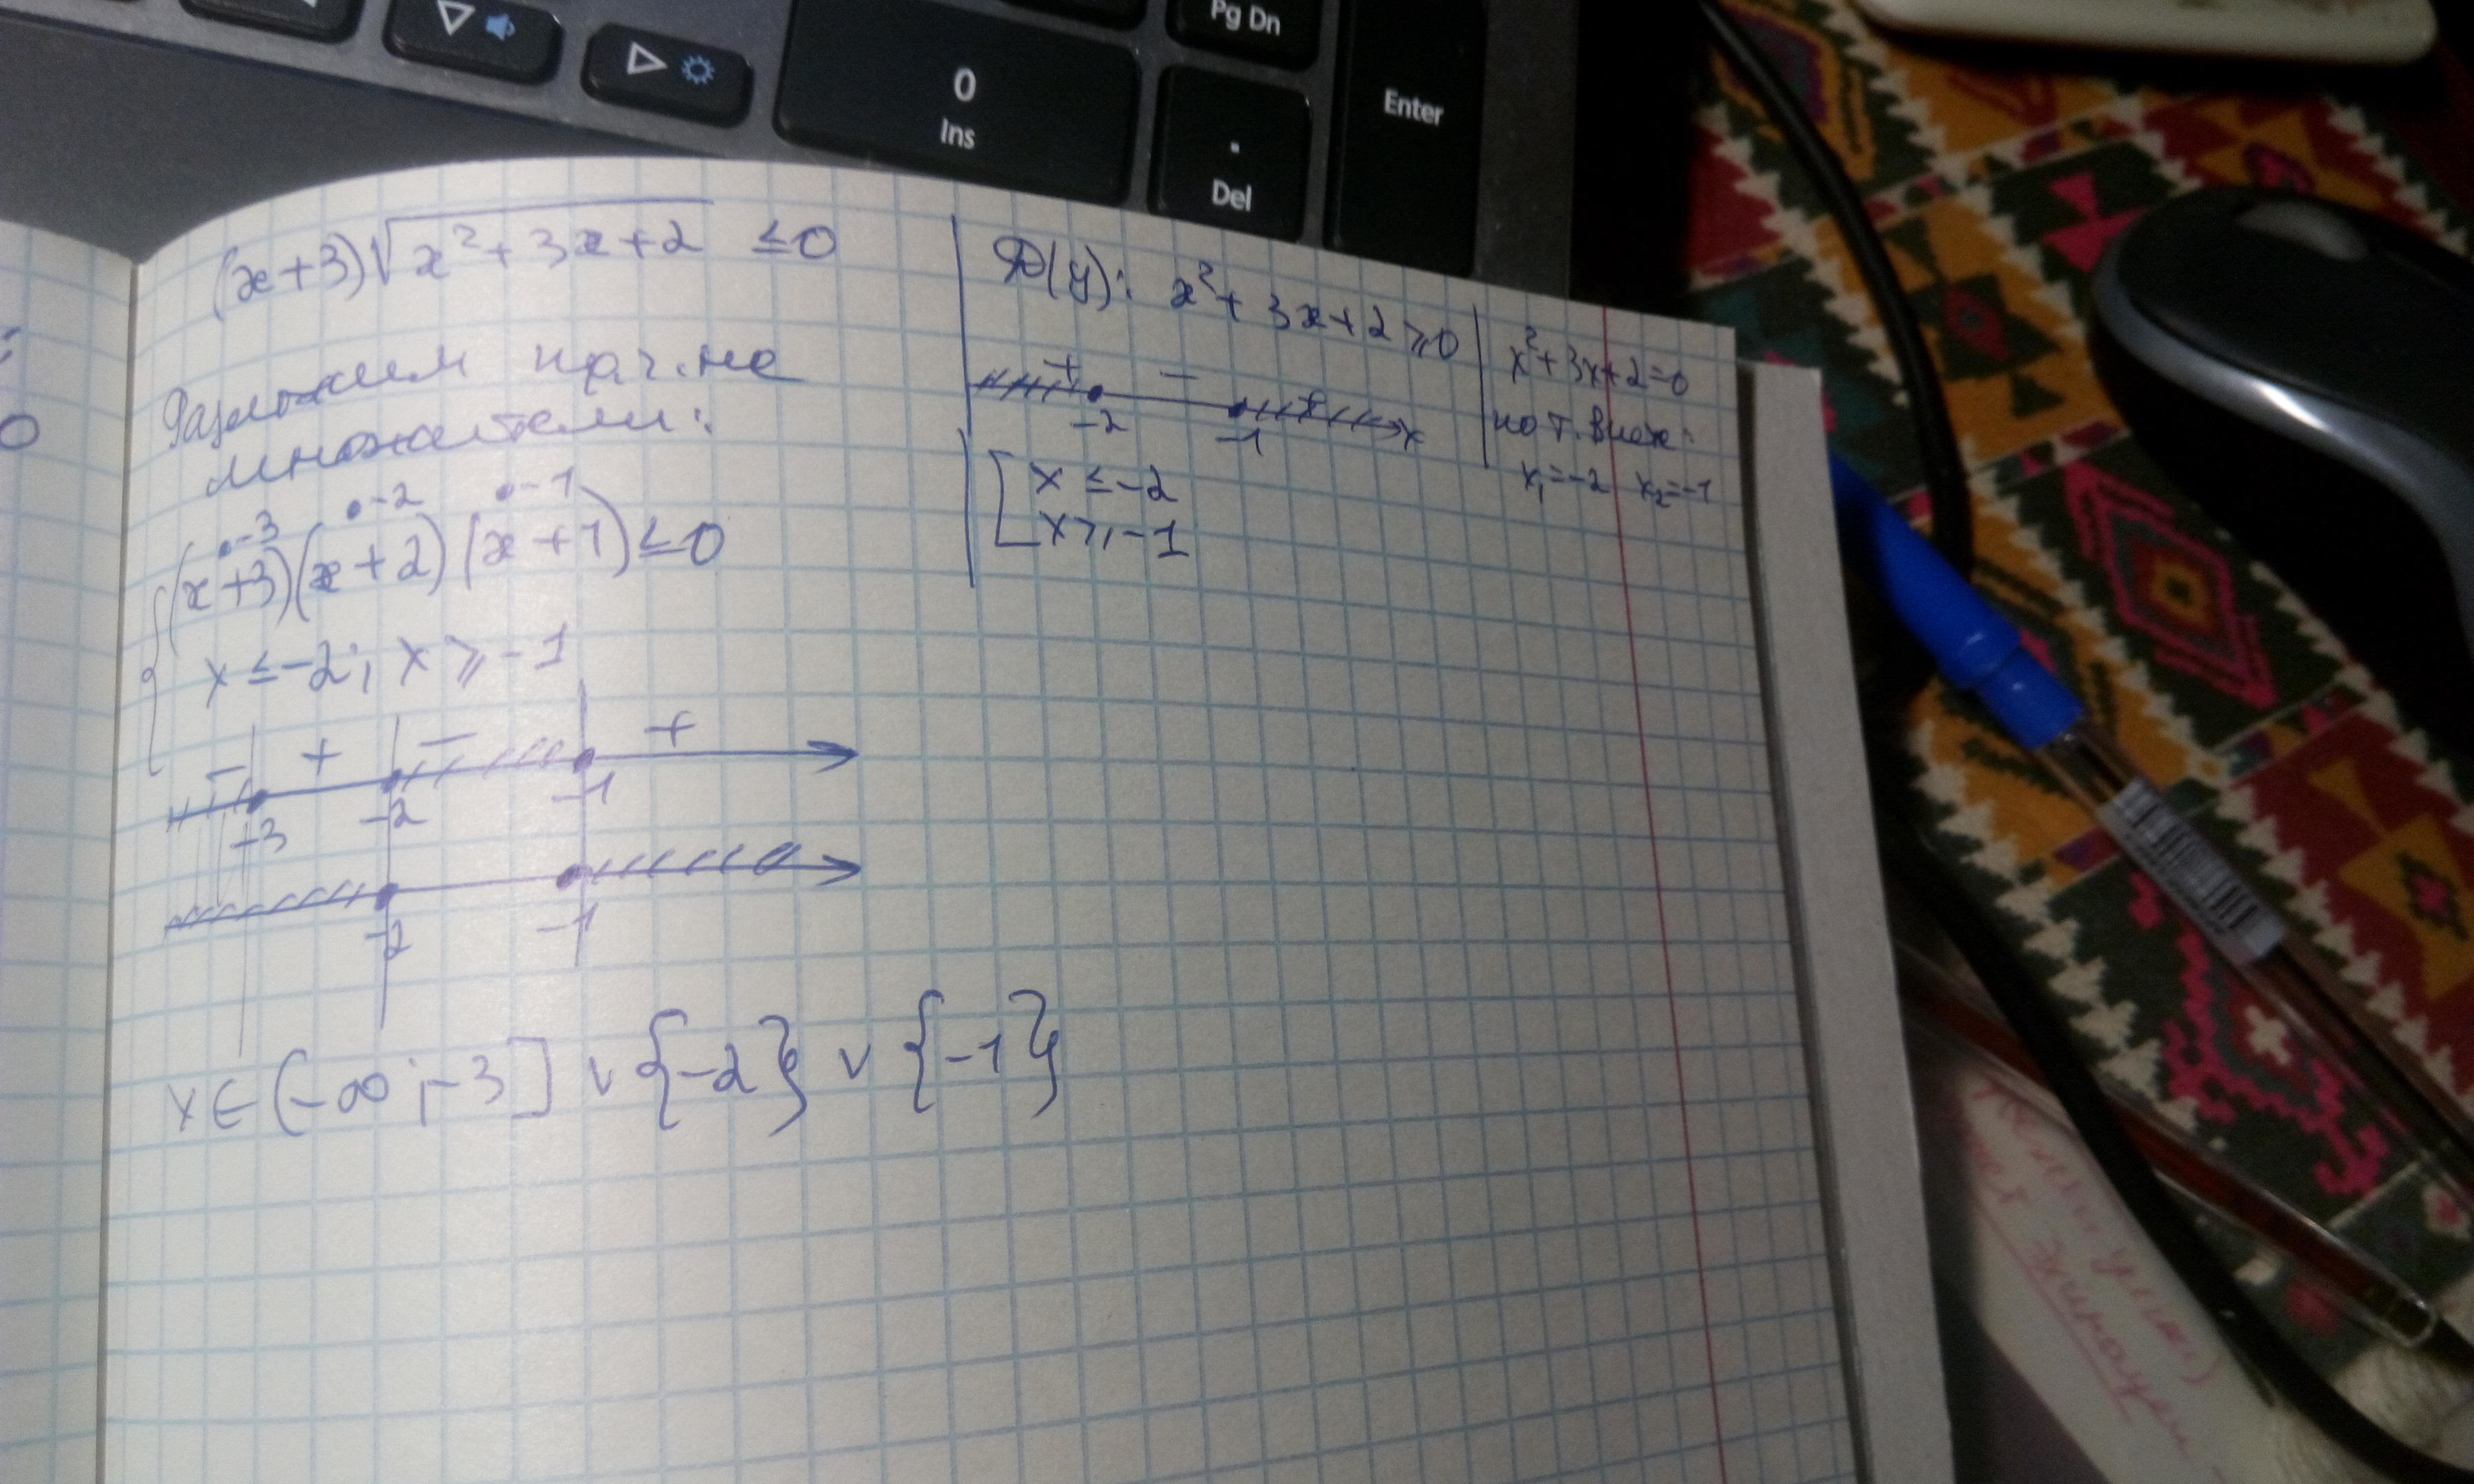 Pg Dn
0
Ins
.
Del
Enter
(x+3)√(x²+3x+2) ≤0
Разложим
множители:
•-3 •-2 •-1
(x+3)(x+2)(x+1)≤0
x ≤-2; x ≥-1
- + - +
-3 -2 -1
-2 -1
x∈(-∞;-3] ∨ {-2} ∨ {-1}
D(y): x²+3x+2≥0
+ - +
-2 -1 x
x ≤-2
x≥-1
x²+3x+2=0
по т.
x₁=-2 x₂=-1
0